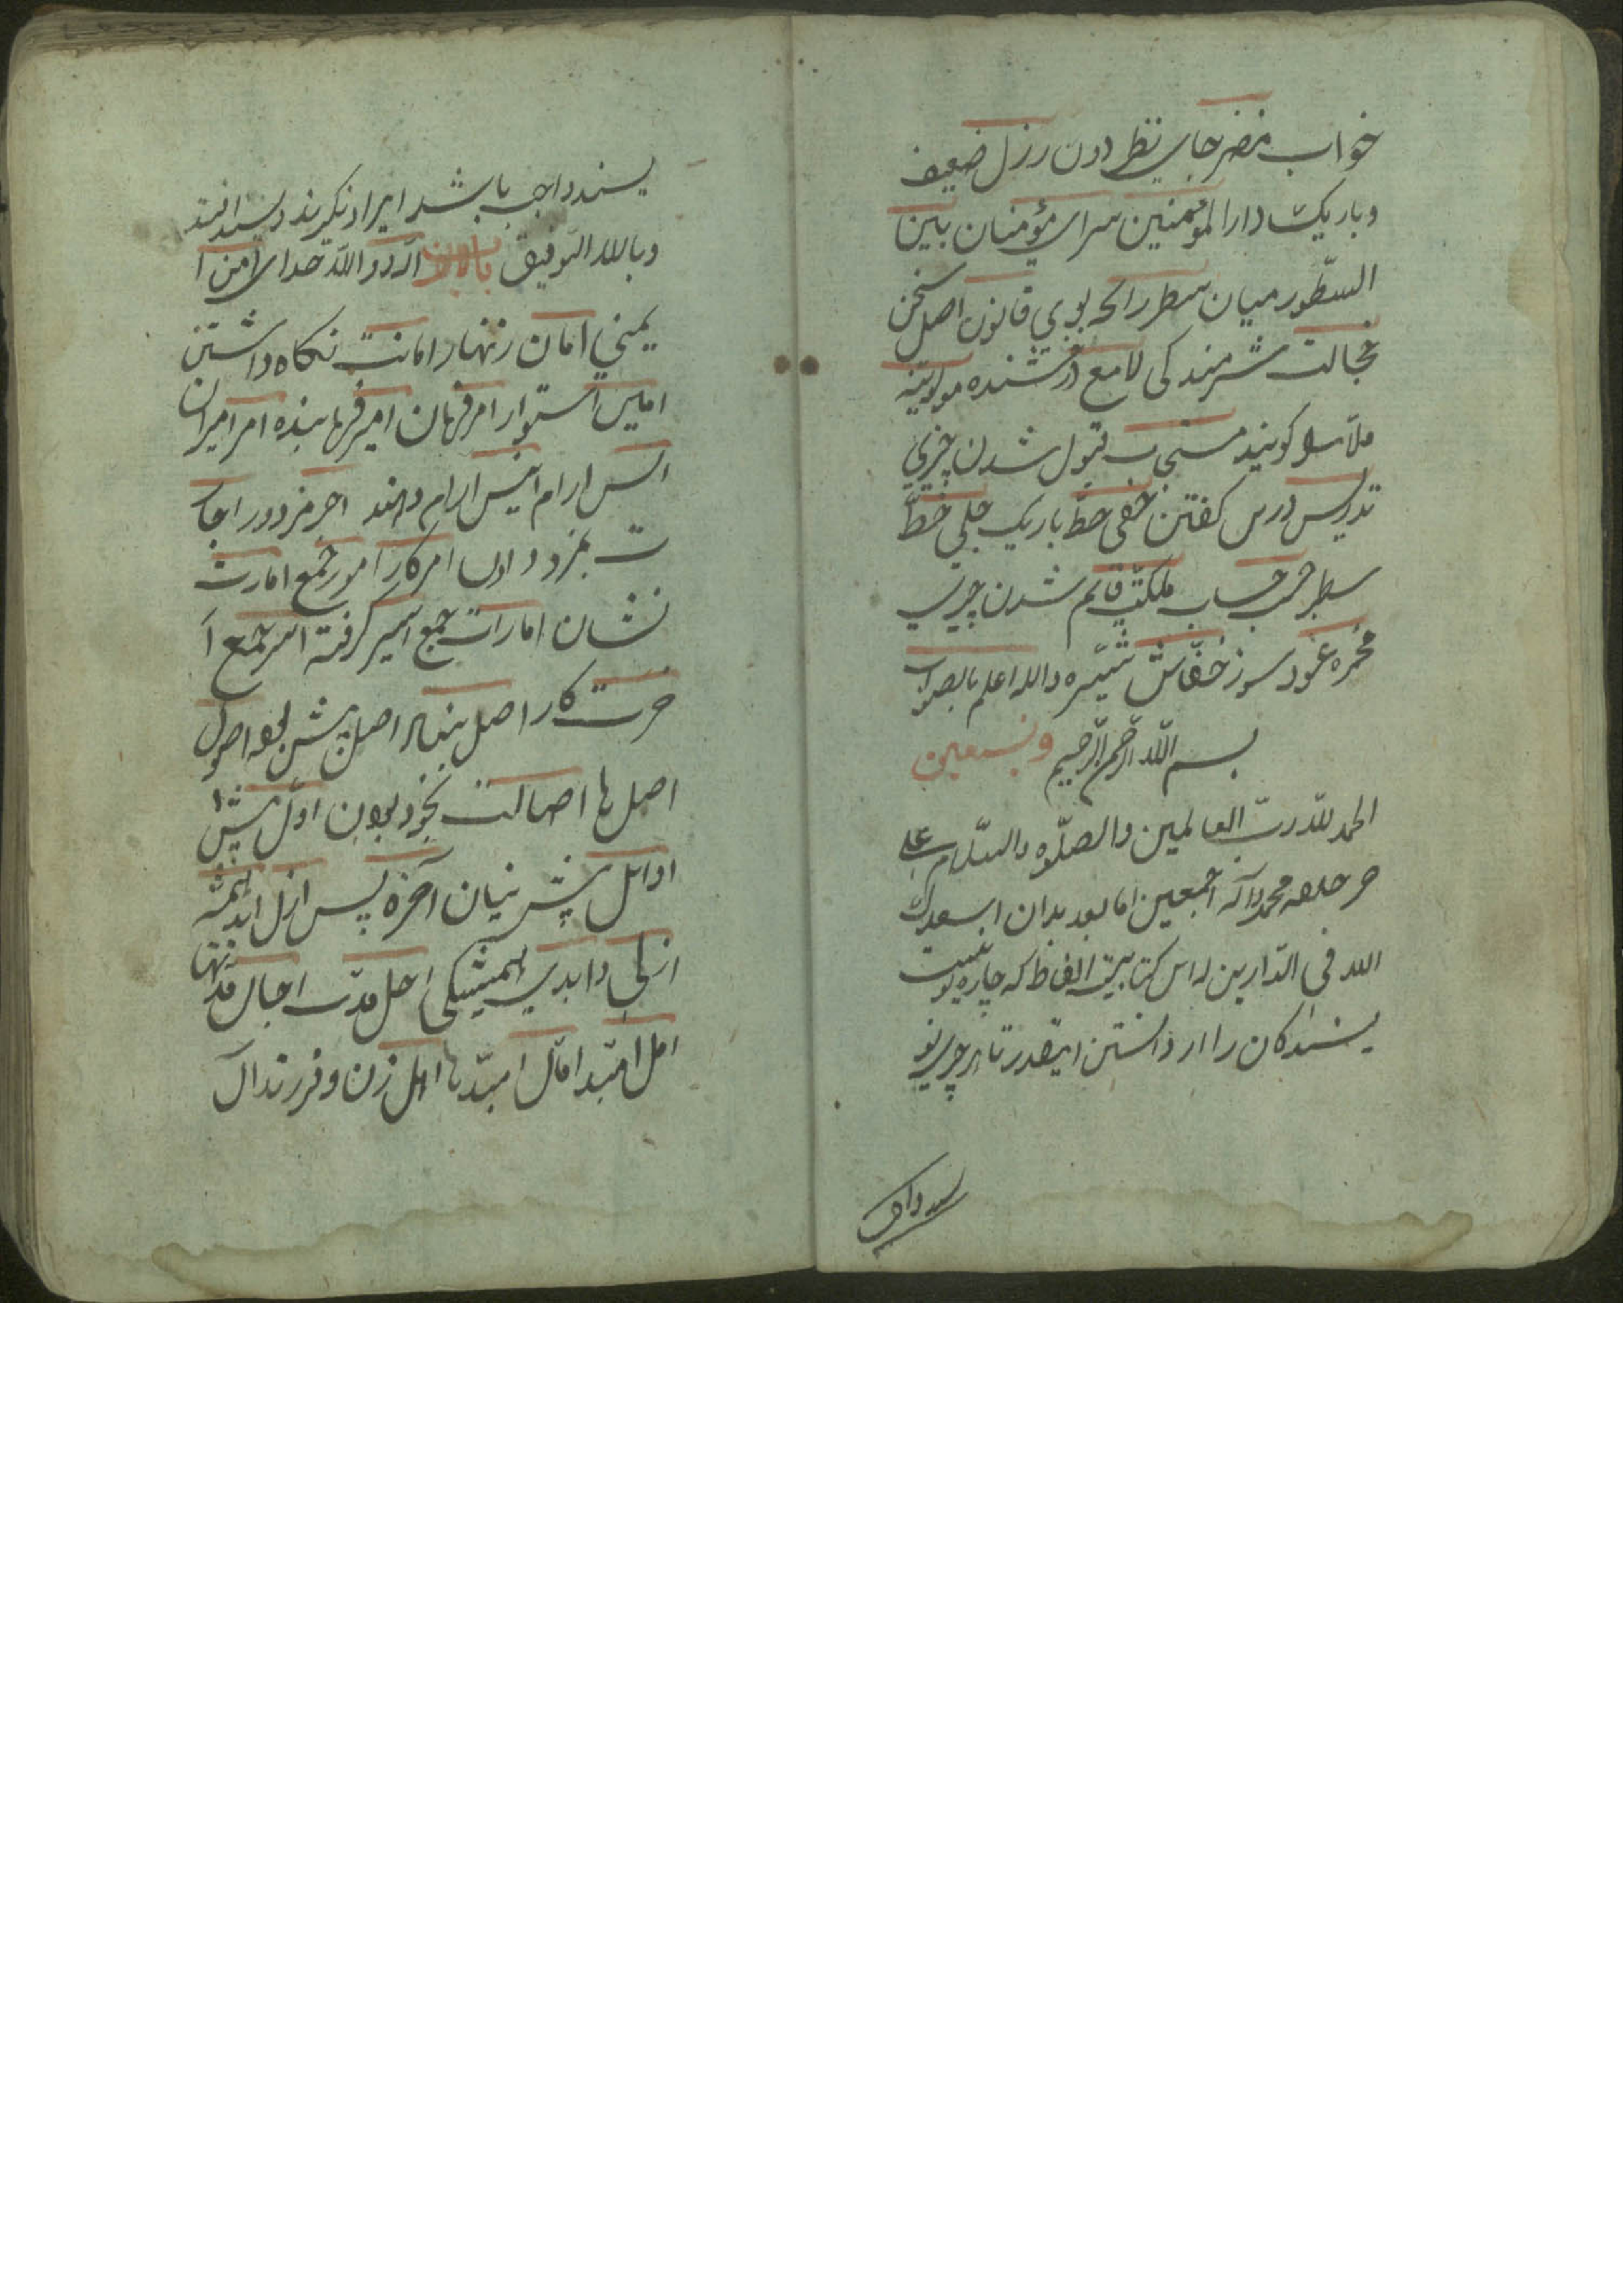 خواب منضر جای نظر دون رزل ضعیف
و باریک دار المؤمنین سرای مؤمنان بین
السّطور میان سطر رائحه بوی قانون اصل سخن
خجالت شرمندکی لامع درخشنده
ملا را کویند مستجاب قبول شدن چیزی
تدریس درس کفتن خفی خط باریک جلی خط
سطبر حسب حساب قایم شدن چیزی
مجمره عود سوز خفّاش شپّره والله اعلم بالصواب
بسم الله الرّحمن الرّحیم و نستعین
الحمد لله ربّ العالمین والصلوه والسّلام علی
خیر خلقه محمد وآله اجمعین اما بعد بدان اسعدک
الله فی الدّارین که این کتابیست الفاظ که چاره نیست
نویسندکان را از دانستن اینقدر تا هر چیزی نو
یسند واجب باشد ایراد نکیرند
وبالله التوفیق باب الالف الله خدای امن ا
یمنی امان زنهار امانت نکاه داشتن
امین استوار امر فرمان امیر فرماینده امرا امیران
انس ارام انیس ارام دهنده اجر مزدور اجا
ت بمزد دادن امر کار امور جمع امارت
نشان امارات جمع اسیر کرفته اسر جمع آ
خرت کار اصل بنیاد اصول
اصل ها اصالت بخود بودن اوّل پیش
اوائل پیش ینیان آخره پس ازل ابد همیشه
ازلی و ابدی همیشکی اجل مدّت اجال مدتها
امل امیّد امال امیدّها اهل زن و فرزند ال